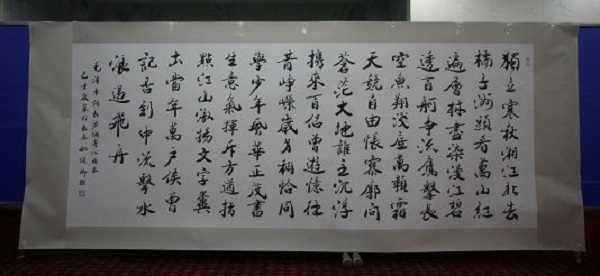 獨立寒秋湘江北去
橘子洲頭看萬山紅
遍層林盡染漫江碧
透百舸爭流鷹擊長
空魚翔淺底萬類霜
天競自由悵寥廓問
蒼茫大地誰主沉浮
携來百侶曾遊憶往
昔崢嶸歲月稠恰同
學少年風華正茂書
生意氣揮斥方遒指
點江山激揚文字糞
土當年萬戶侯曾
記否到中流擊水
浪遏飛舟
毛澤東詞